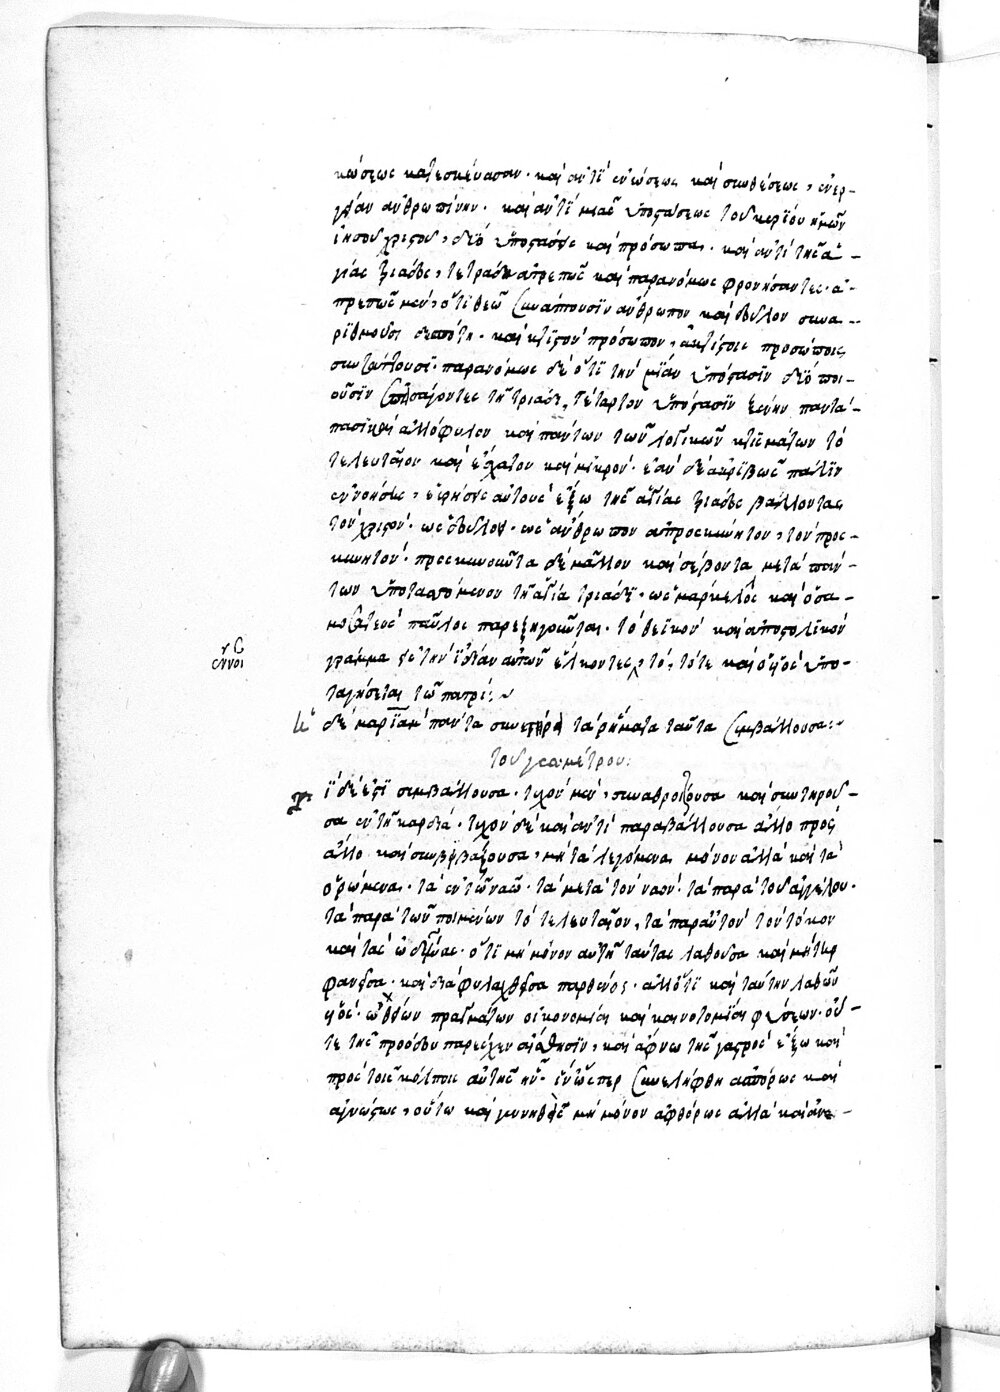 κώσεως κατεσκεύασαν· καὶ ἀντὶ ἑνώσεως καὶ συνθέσεως, ἐνέρ-
γειαν ἀνθρωπίνην· καὶ ἀντὶ μιᾶς ὑποστάσεως τοῦ κυρίου ἡμῶν
ἰησοῦ χριστοῦ, δύο ὑποστάσεις καὶ πρόσωπα· καὶ ἀντὶ τῆς ἁ-
γίας τριάδος, τετράδα ἀπρεπῶς καὶ παρανόμως φρονήσαντες· ἀ-
πρεπῶς μὲν, ὅτι θεῶ συνάπτουσιν ἄνθρωπον καὶ δοῦλον συνα-
ριθμοῦσι δεσπότη· καὶ κτιστὸν πρόσωπον, ἀκτίστοις προσώποις
συντάττουσι· παρανόμως δὲ ὅτι τὴν μίαν ὑπόστασιν δύο ποι-
οῦσιν ἐπεισάγοντες τῆ τριάδι, τέταρτον ὑπόστασιν ξένην παντά-
πασι καὶ ἀλλόφυλον καὶ πάντων τῶν λογικῶν κτισμάτων τὸ
τελευταῖον καὶ ἔσχατον καὶ μικρόν· ἐὰν δὲ ἀκριβῶς πάλιν
ἐννοήσεις, εὑρήσεις αὐτοὺς ἔξω τῆς ἁγίας τριάδος βάλλοντας
τὸν χριστὸν· ὡς δοῦλον· ὡς ἄνθρωπον ἀπροσκύνητον, τὸν προσ-
κυνητὸν· προσκυνοῦντα δὲ μᾶλλον καὶ σέβοντα μετὰ πάν-
των ὑποταττόμενον τῆ ἁγία τριάδι· ὡς μάρκελος καὶ ὁ σα-
μοσατεὺς παῦλος παρεξηγοῦνται· τὸ θεϊκὸν καὶ ἀποστολικὸν
γράμμα εἰς τὴν ἰδίαν αὐτῶν ἕλκοντες, τὸ, τότε καὶ ὁ υἱὸς ὑπο-
ταγήσεται τῶ πατρί:~
ἔννοι
ἡ δὲ μαριὰμ πάντα συνετήρει τὰ ῥήματα ταῦτα συμβάλλουσα:~
τοῦ γεωμέτρου:
τί δέ ἐστι συμβάλλουσα· τυχὸν μὲν, συναθροίζουσα καὶ συντηροῦ-
σα ἐν τῆ καρδία· τυχὸν δὲ καὶ ἀντὶ παραβάλλουσα ἄλλο πρὸς
ἄλλο καὶ συμβιβάζουσα, μὴ τὰ λεγόμενα μόνον ἀλλὰ καὶ τὰ
ὁρώμενα· τὰ ἐν τῶ ναῶ· τὰ μετὰ τὸν ναὸν· τὰ παρὰ τοῦ ἀγγέλου·
τὰ παρὰ τῶν ποιμένων τὸ τελευταῖον, τὰ παρ' αὐτὸν τὸν τόκον
καὶ τὰς ὠδῖνας· ὅτι μὴ μόνον αὐτὴ ταύτας λαθοῦσα καὶ μήτηρ
φανεῖσα· καὶ διαφυλαχθεῖσα παρθένος· ἀλλ' ὅτι καὶ ταύτην λαθὼν
υἱὸς· ὢ θείων πραγμάτων οἰκονομία καὶ καινοτομία φύσεων· οὔ-
τε τῆς προόδου παρέσχεν αἴσθησιν, καὶ ἄφνω τῆς γαστρὸς ἔξω καὶ
πρὸς τοῖς κόλποις αὐτῆς ἦν· ἵν' ὥσπερ συνελήφθη ἀσπόρως καὶ
ἀγνώστως, οὕτω καὶ γεννηθεὶς μὴ μόνον ἀφθόρως ἀλλὰ καὶ ἀνε-